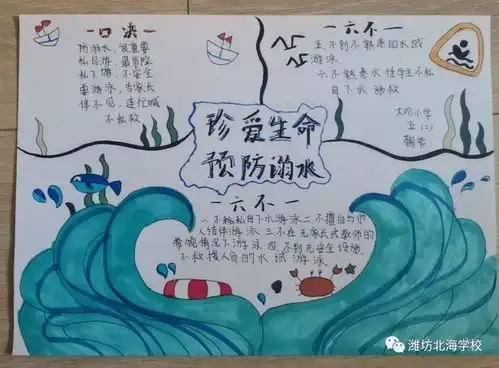 一口决一
防溺水，很重要
私自游，最危险
私下塘，不安全
要游泳，告家长
伴不见，速位喊
不私救
一六不一
五、不到不熟悉的水域
游泳
六、不熟悉水性学生不私
自下水施救
五(二)
珍爱生命
预防溺水
一六不一
一不私私自下水游泳二不擅自与他
人结伴游泳 三不在无家长或教师的
带领情况下游泳 四 不到无安全设施、
不救援人员的水域游泳
潍坊北海学校